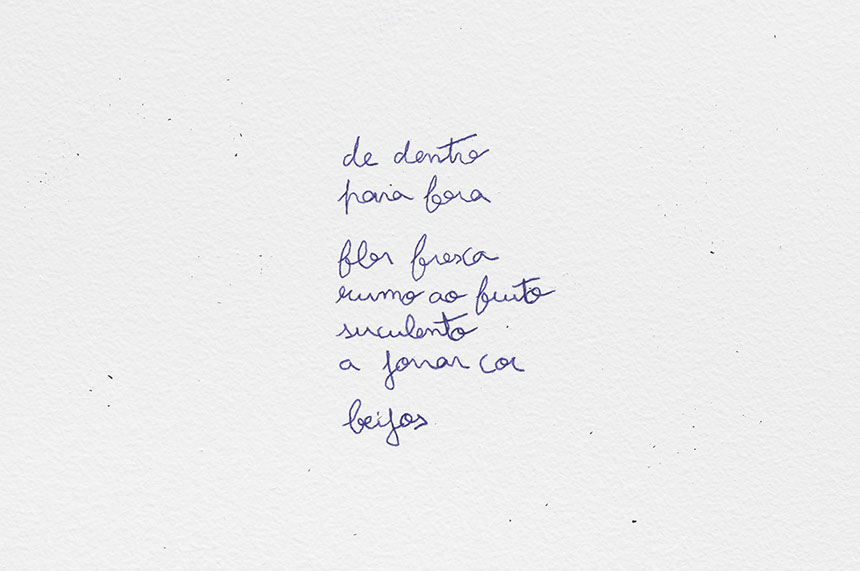 de dentro
para fora
flor fresca
rumo ao fruto
suculento
a jorrar cor
beijos